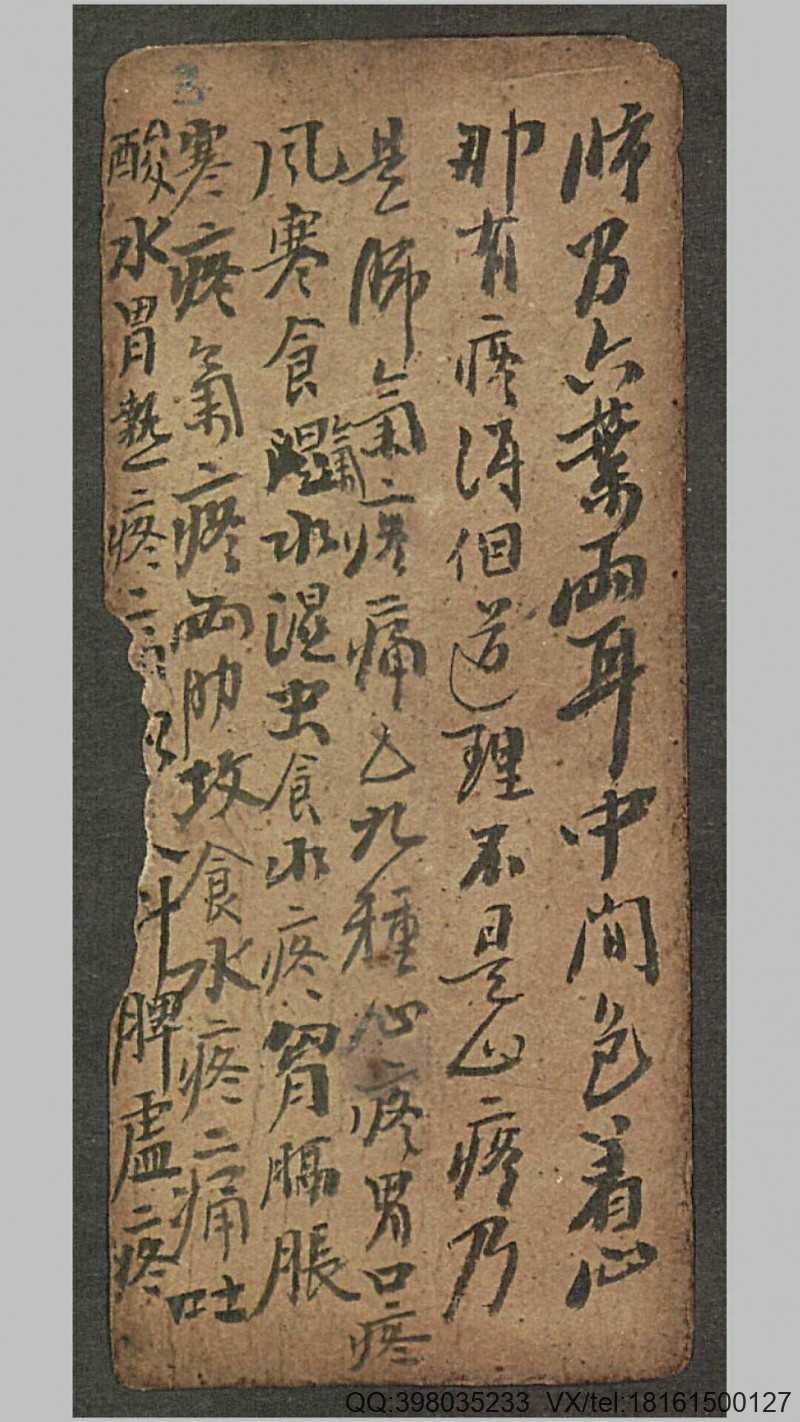 3
肺乃六葉兩耳中間包着心
那有疼得但道理不是心疼乃
是肺氣疼痛 九種心疼胃口疼
風寒食濕氣水混虫食水疼胃膈脹
寒疼氣疼兩肋攻食水疼痛吐
酸水胃熱疼 脾虛疼
QQ:398035233 VX/tel:18161500127